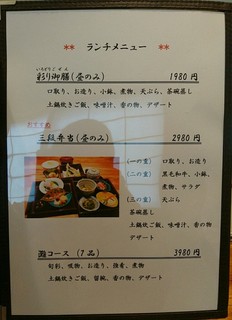 ** ランチメニュー **
いろどりごぜん
彩り御膳(昼のみ) 1980円
口取り、お造り、小鉢、煮物、天ぷら、茶碗蒸し
土鍋炊きご飯、味噌汁、香の物、デザート
おすすめ
三段弁当(昼のみ) 2980円
(一の重) 口取り、お造り
(二の重) 黒毛和牛、小鉢、
煮物、サラダ
(三の重) 天ぷら
茶碗蒸し
土鍋炊きご飯、味噌汁、香の物
デザート
灘コース (7品) 3980円
旬彩、吸物、お造り、強肴、煮物
土鍋炊きご飯、留椀、香の物、デザート